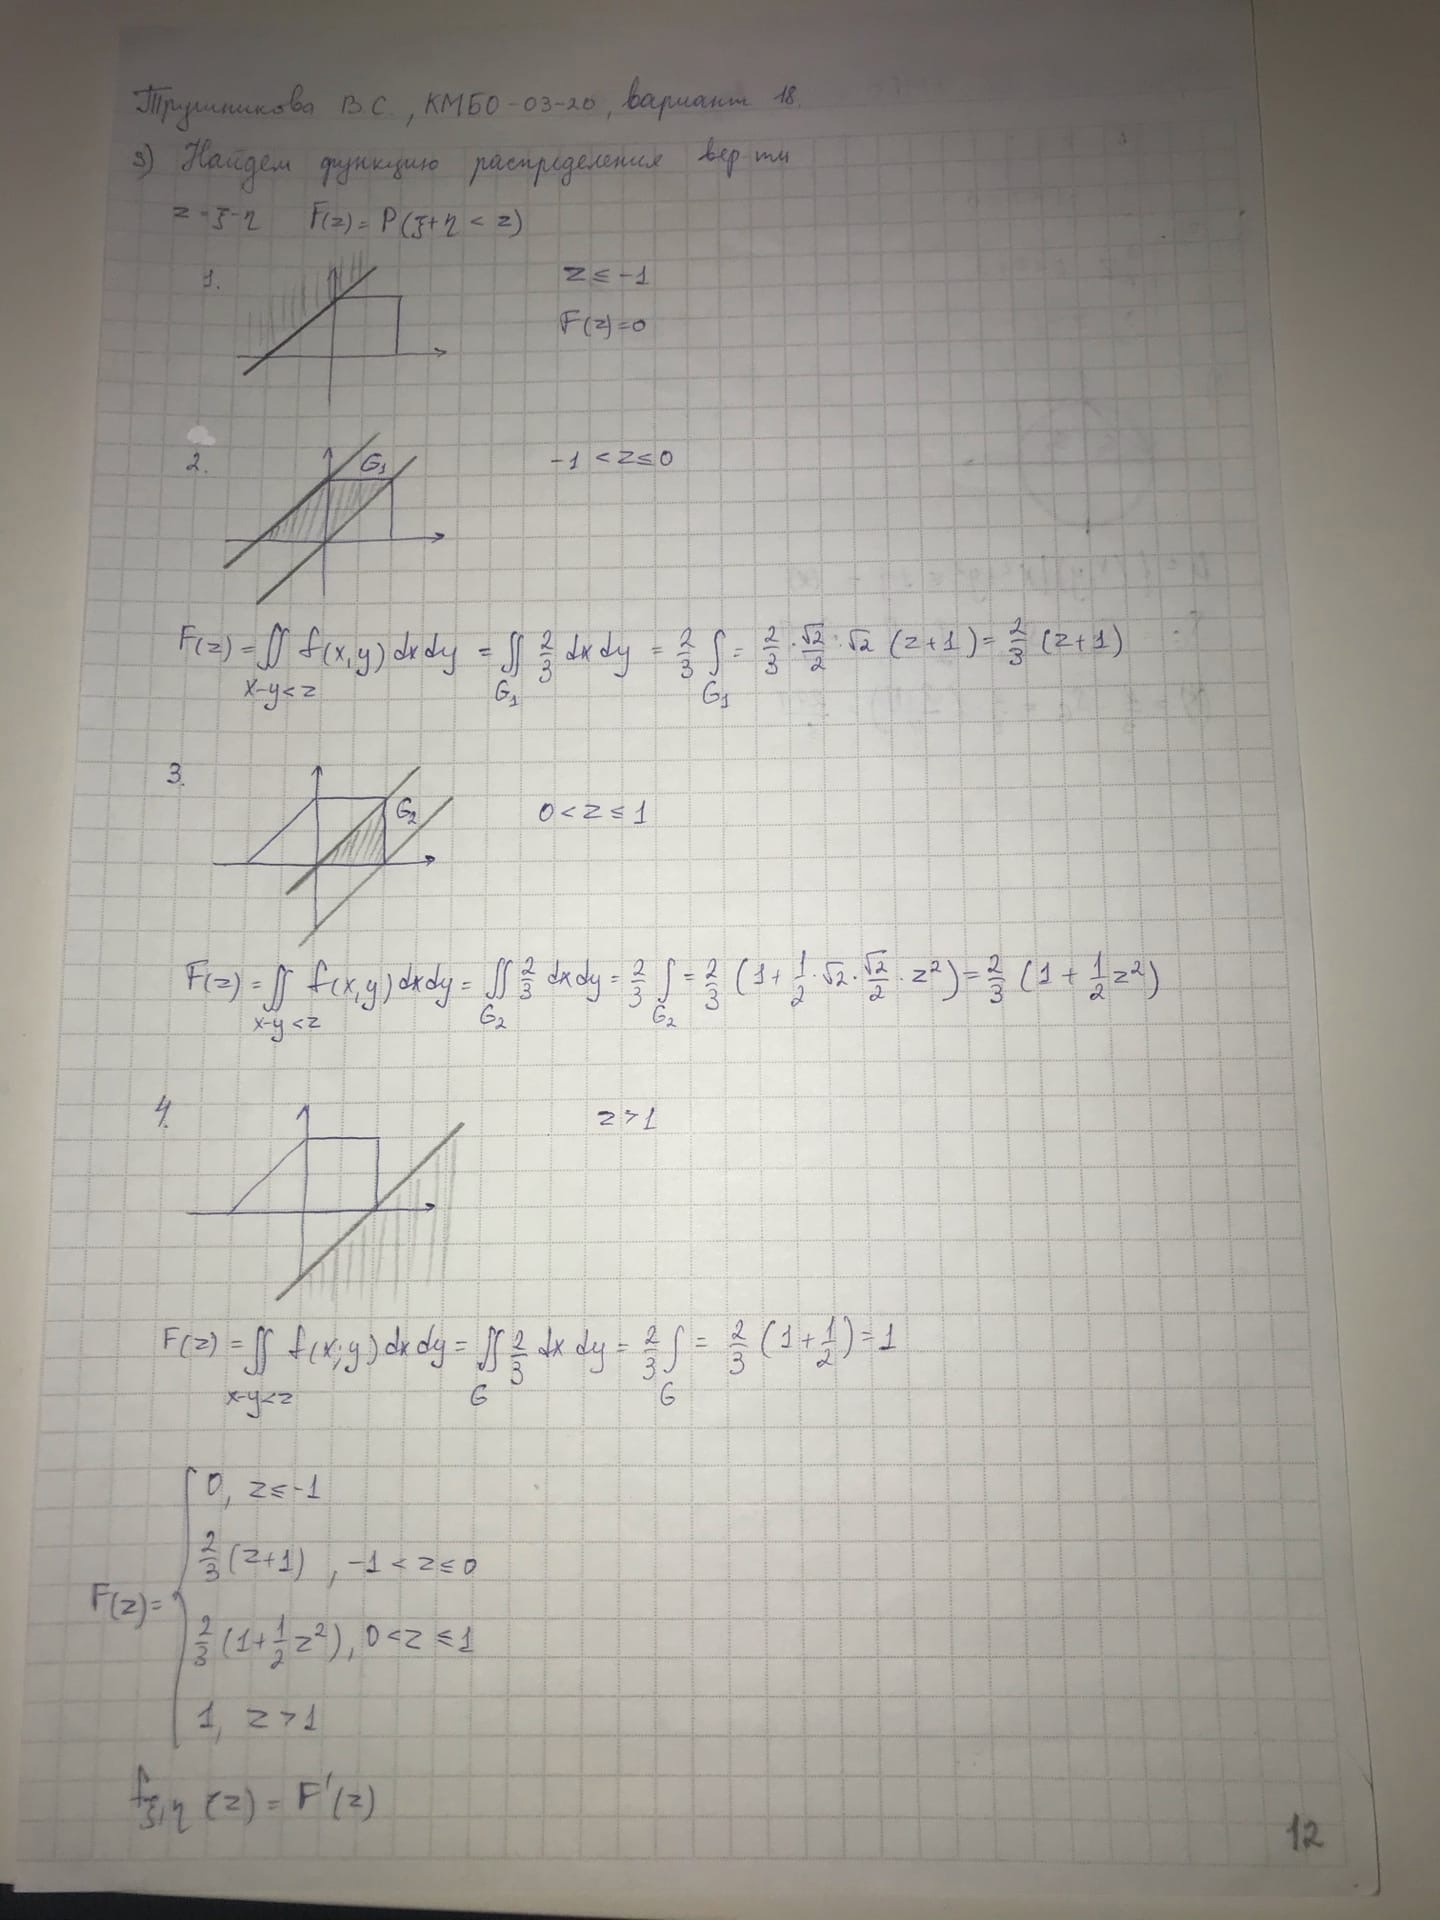 Трушникова В.С., КМБО-03-20, вариант 18.
3) Найдем функцию распределения вер-ти
z = ξ-η F(z) = P(ξ+η < z)
1. z ≤ -1
F(z)=0
2. G₁ -1 < z ≤ 0
F(z) = ∬ f(x,y) dxdy = ∬ 2/3 dxdy = 2/3 ∫ = 2/3 · √2/2 · √2 (z+1) = 2/3 (z+1)
x-y<z G₁ G₁
3. G₂ 0 < z ≤ 1
F(z) = ∬ f(x,y) dxdy = ∬ 2/3 dxdy = 2/3 ∫ = 2/3 (1 + 1/2 · √2 · √2/2 · z²) = 2/3 (1 + 1/2 z²)
x-y<z G₂ G₂
4. z > 1
F(z) = ∬ f(x,y) dxdy = ∬ 2/3 dxdy = 2/3 ∫ = 2/3 (1 + 1/2) = 1
x-y<z G G
0, z ≤ -1
2/3 (z+1), -1 < z ≤ 0
F(z) = {
2/3 (1 + 1/2 z²), 0 < z ≤ 1
1, z > 1
f ξ,η (z) = F'(z)
12